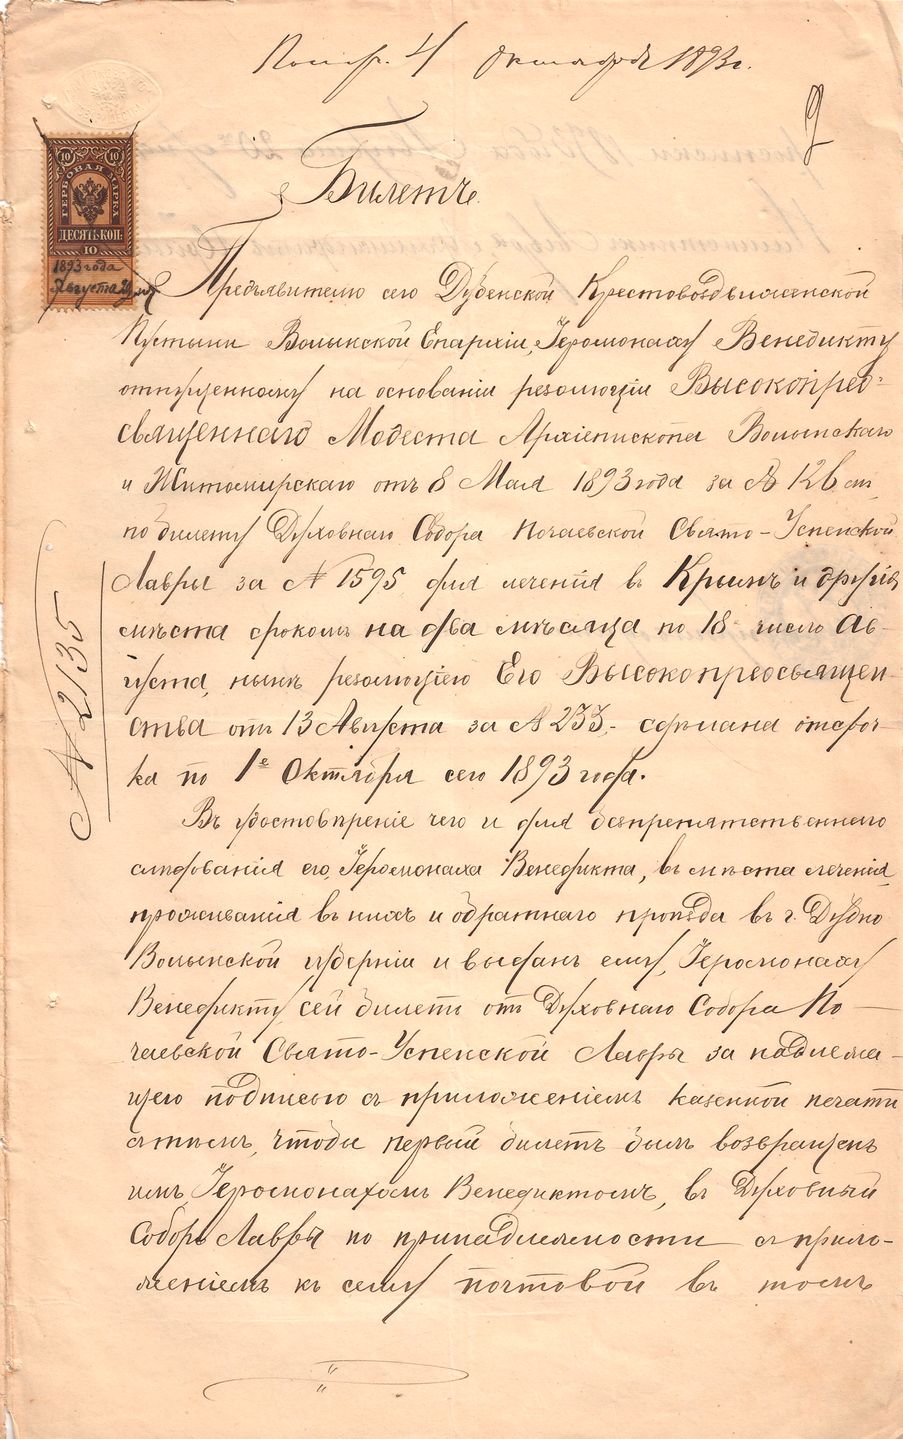 Получ. 4 Октября 1893 г.
9
Билетъ.
10 10
ГЕРБОВАЯ МАРКА
ДЕСЯТЬ КОП:
10
1893 года
Августа
Предъявителю сего Дубенской Крестовоздвиженской
Пустыни Волынской Епархіи, Іеромонаху Венедикту
отпущенному на основаніи резолюціи Высокопрео-
священнаго Модеста Архіепископа Волынскаго
и Житомирскаго отъ 8 Мая 1893 года за №
по билету Духовнаго Собора Почаевской Свято-Успенской
Лавры за № 1595 для леченія въ Крымъ и другія
мѣста срокомъ на два мѣсяца по 18 число Ав-
густа, нынѣ резолюціею Его Высокопреосвящен-
ства отъ 13 Августа за № 233,- сдѣлана отсроч-
ка по 1е Октября сего 1893 года.
Въ удостовѣреніе чего и для безпрепятственнаго
слѣдованія его, Іеромонаха Венедикта, въ мѣста леченія,
проживанія въ нихъ и обратнаго проѣзда въ г. Дубно
Волынской губерніи и выданъ ему, Іеромонаху
Венедикту сей билетъ отъ Духовнаго Собора По-
чаевской Свято-Успенской Лавры за надлежа-
щею подписью съ приложеніемъ казенной печати
съ тѣмъ, чтобы первый билетъ былъ возвращенъ
имъ, Іеромонахомъ Венедиктомъ, въ Духовный
Соборъ Лавры по принадлежности съ прило-
женіемъ къ сему почтовой въ томъ
№ 2135